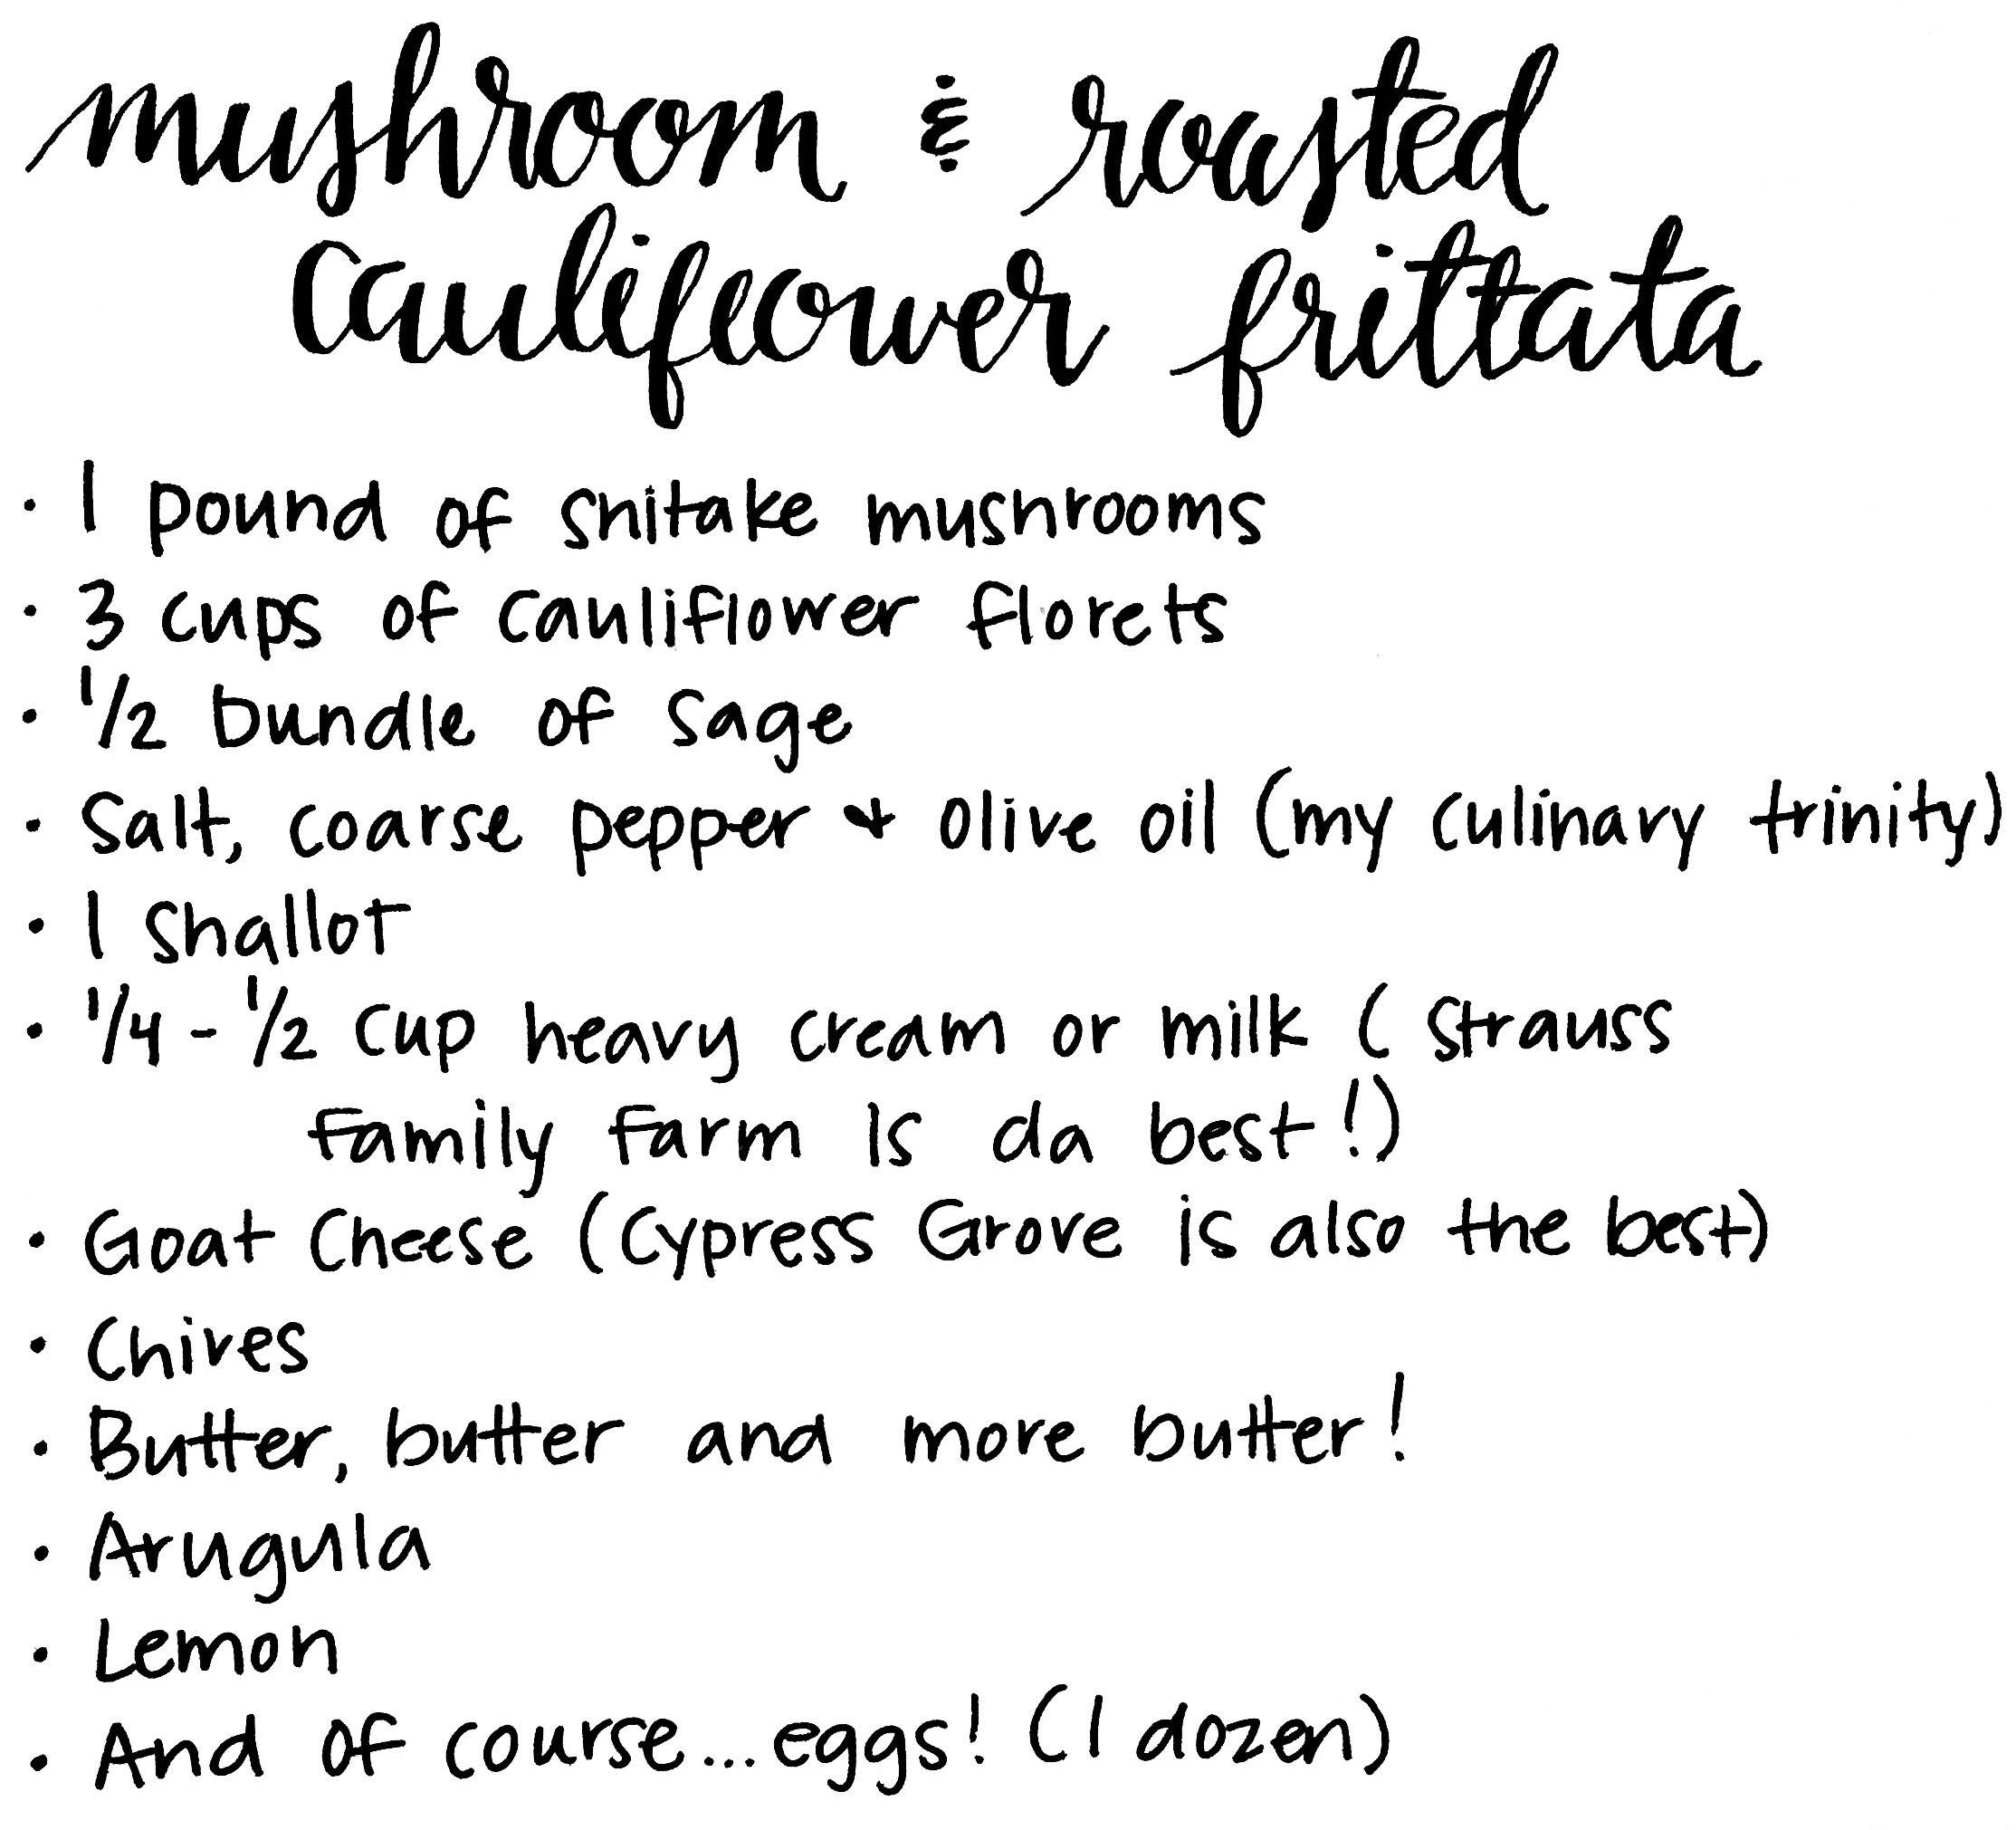 mushroom & roasted
cauliflower frittata
· 1 pound of shitake mushrooms
· 3 cups of cauliflower florets
· 1/2 bundle of sage
· Salt, coarse pepper & olive oil (my culinary trinity)
· 1 shallot
· 1/4 - 1/2 cup heavy cream or milk ( Strauss
Family Farm is da best!)
· Goat Cheese (Cypress Grove is also the best)
· Chives
· Butter, butter and more butter!
· Arugula
· Lemon
· And of course... eggs! (1 dozen)